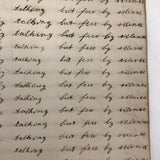 talking but few by silence
talking but few by silence
talking but few by silence
talking but few by silence
talking but few by silence
talking but few by silence
talking but few by silence
talking but few by silence
talking but few by silence
talking but few by silence
talking but few by silence